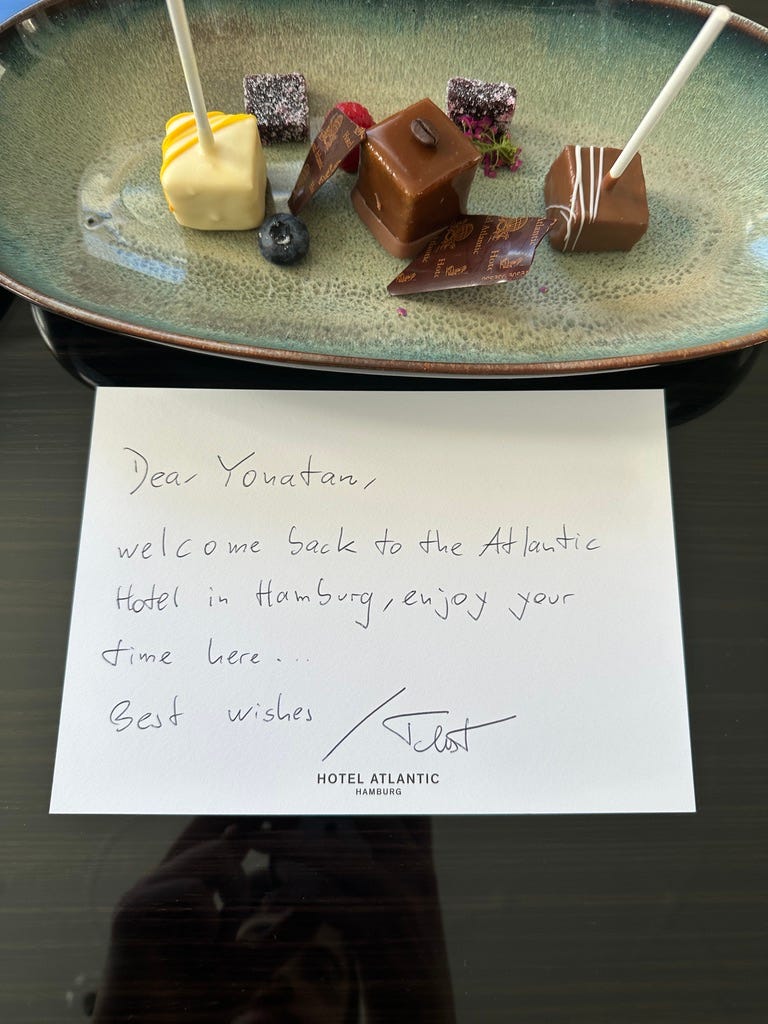 Hotel
Atlantic
Dear Yonatan,
welcome back to the Atlantic
Hotel in Hamburg, enjoy your
time here...
Best wishes
HOTEL ATLANTIC
HAMBURG